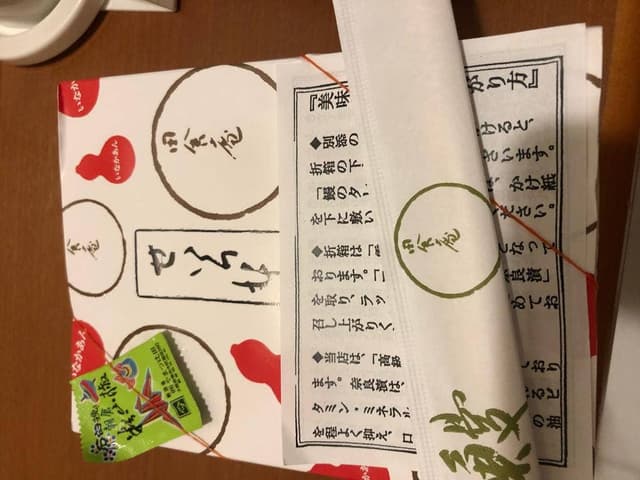 いなかあん
田舎庵
いなかあん
田舎庵
せいろ
いなかあん
『美味
がり方』
◆別添の
けると、
折箱の下
ざいます。
「鰻のタ
かけ紙
を下に敷い
ださい。
◆折箱は「
となって
おります。「
良漬」
を取り、ラッ
めてお
召し上がりく
◆当店は、「高
おり
ます。奈良漬は、
いると
タミン・ミネラル
の油
を程よく抑え、口
田舎庵
いなかあん